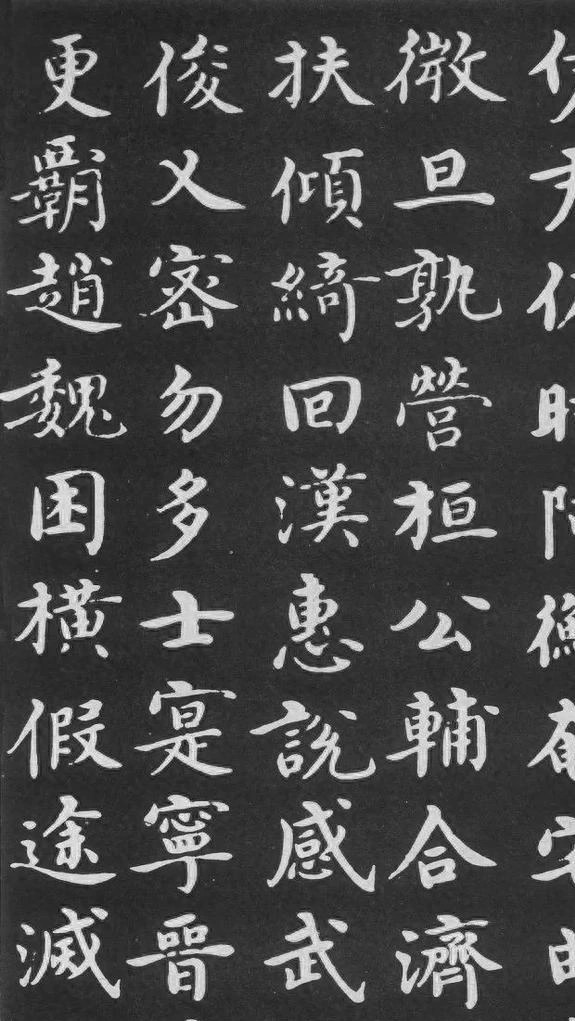 微旦孰營桓公輔合濟
扶傾綺回漢惠説感武
俊乂密勿多士寔寧晉
更覇趙魏困横假途滅